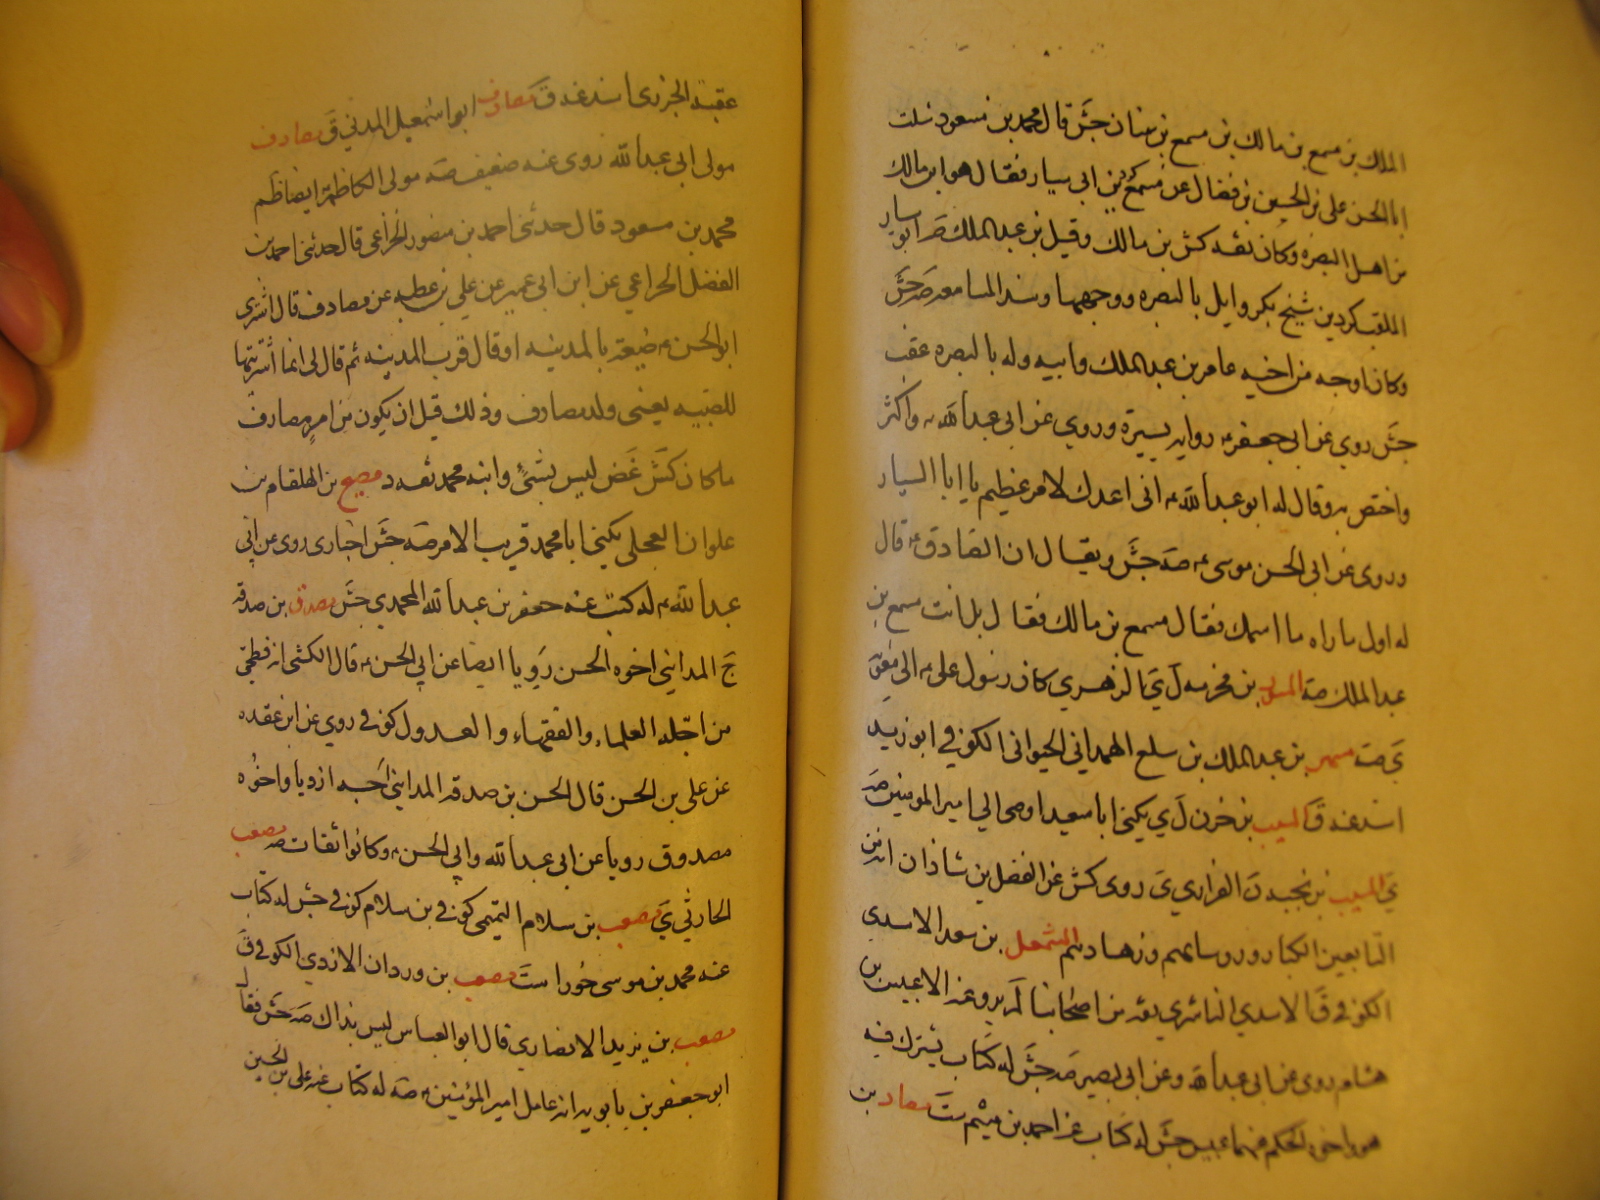 الملك بن مسمع بن مالك بن مسمع بن سنان جش قال محمد بن مسعود سئلت
ابا الحسن علي بن الحسين بن فضال عن مسمع كردين ابي سيار فقال هو ابن مالك
من اهل البصره وكان ثقه كش بن مالك وقيل بن عبد الملك صه ابو سيار
الملقب كردين شيخ بكر وايل بالبصره ووجهها وسيد المسامعه صه جش
وكان اوجه من اخيه عامر بن عبد الملك وابيه وله بالبصره عقب
جش روي عن ابي جعفر ع روايه يسيرة وروي عن ابي عبد الله ع واكثر
واختص به وقال له ابو عبد الله ع اني اعدك لامر عظيم يا ابا السيار
وروى عن ابي الحسن موسى ع صه جش ويقال ان الصادق ع قال
له اول ما راه ما اسمك فقال مسمع بن مالك فقال بل انت مسمع بن
عبد الملك صه المسور بن مخرمه ل ي الزهري كان رسول علي ع الى معوية
ي صه مسهر بن عبد الملك بن سلع الهمداني الحيواني الكوفي ابو زيد
اسند عنه ق المسيب بن حزن ل ي يكنى ابا سعيد اوصى الى امير المومنين صه
ي المسيب بن نجبه ن الفزاري ي روى كش عن الفضل بن شاذان انه من
التابعين الكبار وروسائهم وزهادهم المشمعل بن سعد الاسدي
الكوفي ق الاسدي الناشري ثقه من اصحابنا لم يرو عنه الا عبيس بن
هشام روى عن ابي عبد الله وعن ابي بصير صه جش له كتاب يشترك فيه
هو واخوه الحكم عنهما عبيس جش له كتاب عن احمد بن ميثم ست مصاد بن
عقبة الجزري اسند عنه ق مصادف ابو اسمعيل المدني ق مصادف
مولى ابي عبد الله روى عنه ضعيف صه مولى الكاظم ع ايضا ظم
محمد بن مسعود قال حدثني احمد بن منصور الخزاعي قال حدثني احمد بن
الفضل الخزاعي عن ابن ابي عمير عن علي بن عطيه عن مصادف قال اشترى
ابو الحسن ع ضيعة بالمدينه او قال قرب المدينه ثم قال لي انما اشتريتها
للصبيه يعني ولد مصادف وذلك قبل ان يكون من امر مصادف
ما كان كش غض ليس بشئ وابنه محمد ثقه د مصبح بن الهلقام بن
علوان العجلي يكنى ابا محمد قريب الامر صه جش اخباري روى عن ابي
عبد الله ع له كتب عنه جعفر بن عبد الله المحمدي جش مصدق بن صدقه
ج المدايني اخوه الحسن رويا ايضا عن ابي الحسن ع قال الكشي انه فطحي
من اجله العلماء والفقهاء والعدول كوفي روي عن ابن عقده
عن علي بن الحسن قال الحسن بن صدقه المدايني احسبه ازديا واخوه
مصدوق رويا عن ابي عبد الله وابي الحسن ع وكانوا ثقات صه مصعب
الحارثي ي مصعب بن سلام التيمى كوفي بن سلام كوفي جش له كتاب
عنه محمد بن موسى خورا ست مصعب بن وردان الازدي الكوفي ق
مصعب بن يزيد الانصاري قال ابو العباس ليس بذاك صه جش فقال
ابو جعفر بن بابويه انه عامل امير المؤمنين ع صه له كتاب عنه علي بن الحسين